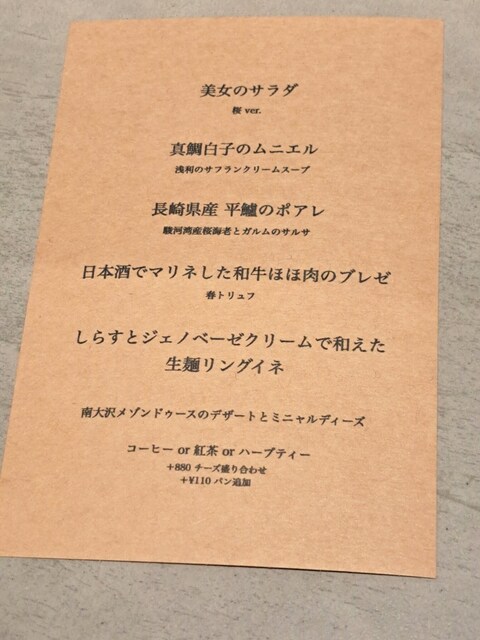 美女のサラダ
桜 ver.
真鯛白子のムニエル
浅利のサフランクリームスープ
長崎県産 平鱸のポアレ
駿河湾産桜海老とガルムのサルサ
日本酒でマリネした和牛ほほ肉のブレゼ
春トリュフ
しらすとジェノベーゼクリームで和えた
生麺リングイネ
南大沢メゾンドゥースのデザートとミニャルディーズ
コーヒー or 紅茶 or ハーブティー
+880 チーズ盛り合わせ
+¥110 パン追加